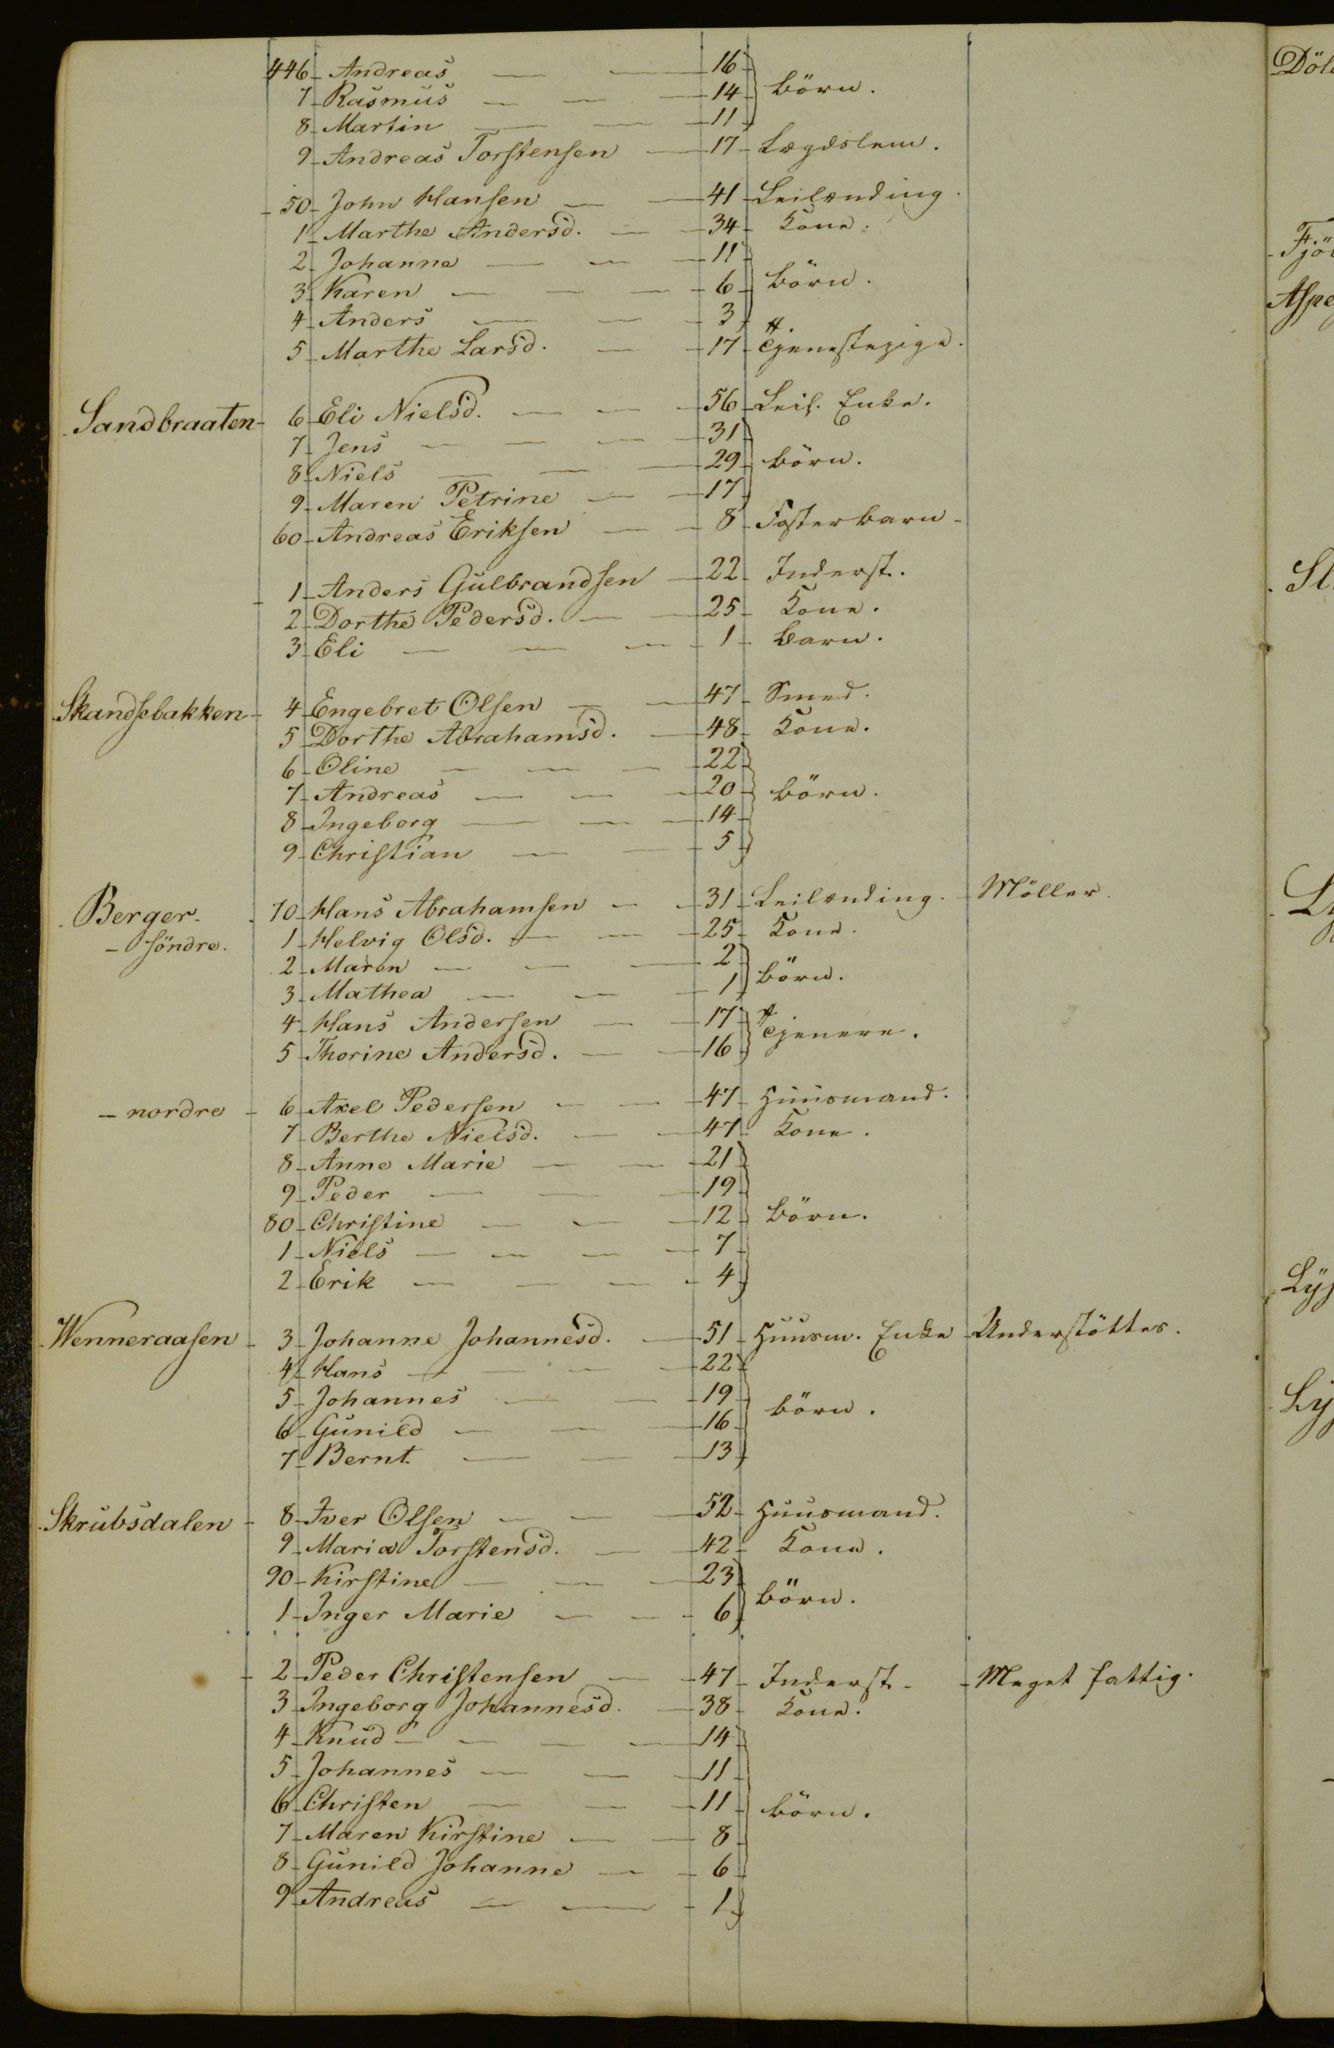 446 Andreas — — 16 Börn.
7 Rasmus — — — 14
8 Martin — — — 11
9 Andreas Torstensen — 17 Lægdslem.
50 John Hansen — — 41 Leilending.
1 Marthe Andersd. — — 34 Kone.
2 Johanne — — — 11
3 Karen — — — 6 Börn.
4 Anders — — — 3
5 Marthe Larsd. — — 17 Tjenestepige.
Sandbraaten 6 Eli Nielsd. — — 56 Leil. Enke.
7 Jens — — — 31
8 Niels — — — 29 Börn.
9 Maren Petrine — — 17
60 Andreas Eriksen — — 8 Fosterbarn
1 Anders Gulbrandsen — 22 Inderst.
2 Dorthe Pedersd. — — 25 Kone.
3 Eli — — — 1 Barn.
Skandsebakken 4 Engebret Olsen — — 47 Smed.
5 Dorthe Abrahamsd. — 48 Kone.
6 Oline — — — 22
7 Andreas — — — 20 Börn.
8 Ingeborg — — — 14
9 Christian — — 5
Berger 70 Hans Abrahamsen — — 31 Leilending. Möller.
— söndre. 1 Helvig Olsd. — — — 25 Kone.
2 Maren — — — 2
3 Mathea — — — 1 Börn.
4 Hans Andersen — — 17 Tjenere.
5 Thorine Andersd. — — 16
— nordre 6 Axel Pedersen — — 47 Huusmand.
7 Berthe Nielsd. — — 47 Kone.
8 Anne Marie — — 21
9 Peder — — — 19
80 Christine — — — 12 Börn.
1 Niels — — — — 7
2 Erik — — — — 4
Wenneraasen 3 Johanne Johannesd. — 51 Huusm. Enke Understöttes.
4 Hans — — — 22
5 Johannes — — 19 Börn.
6 Gunild — — — 16
7 Bernt — — — 13
Skrubsdalen 8 Iver Olsen — — — 52 Huusmand.
9 Maria Torstensd. — 42 Kone.
90 Kirstine — — — 23 Börn.
1 Inger Marie — — — 6
2 Peder Christensen — 47 Inderst. Meget fattig.
3 Ingeborg Johannesd. — 38 Kone.
4 Knud — — — — 14
5 Johannes — — — 11
6 Christen — — — 11 Börn.
7 Maren Kirstine — — 8
8 Gunild Johanne — — 6
9 Andreas — — — 1